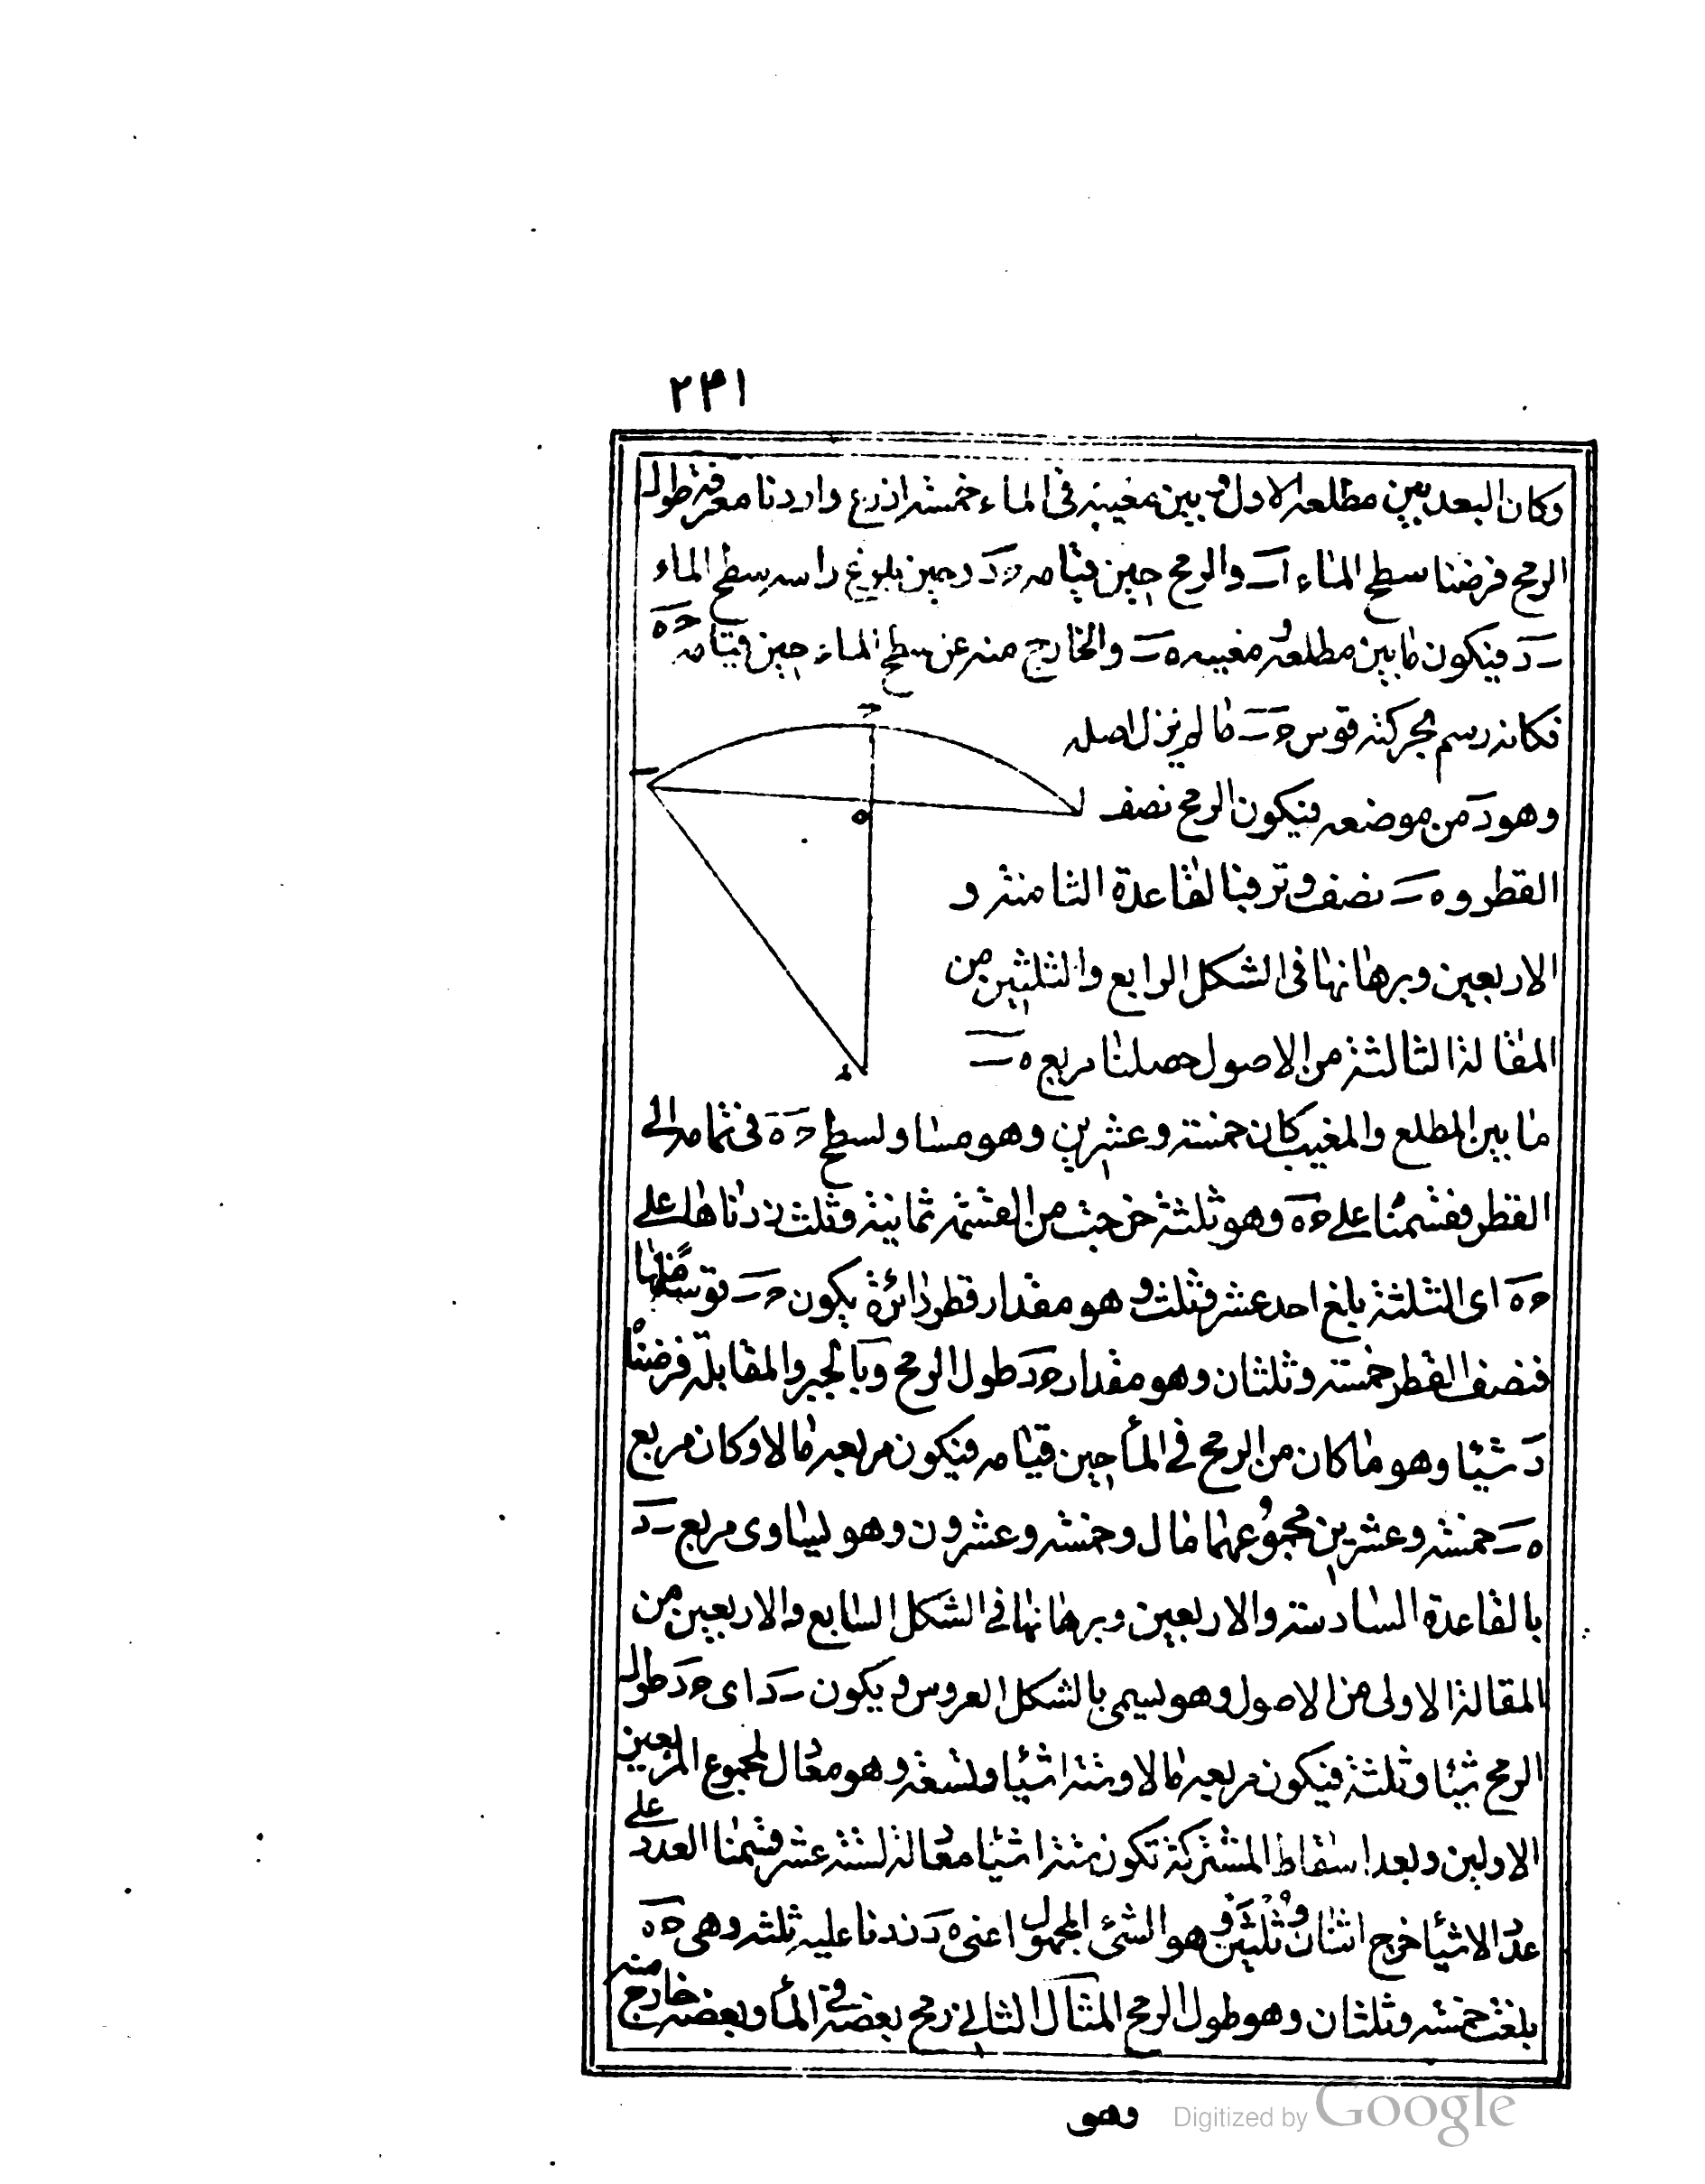 ٢٣١
وكان البعد بين مطلعه الاول وبين مغيبه فى الماء خمسة اذرع واردنا معرفة طول
الرمح فرضنا سطح الماء اب والرمح حين قيامه حد وحين بلوغ راسه سطح الماء
ب د فيكون ما بين مطلعه ومغيبه ه ب والخارج منه عن سطح الماء حين قيامه ح ه
فكانه رسم بحركته قوس ح ب ما لم يزل اصله
وهو د من موضعه فيكون الرمح نصف
القطر و ه ب نصف وتر فبالقاعدة الثامنة و
الاربعين وبرهانها فى الشكل الرابع والثلثين من
المقالة الثالثة من الاصول حصلنا مربع ه ب
ما بين المطلع والمغيب كان خمسة وعشرين وهو مساو لسطح ح ه فى تمامه الى
القطر فقسمنا على ح ه وهو ثلثة خرجت من القسمة ثمانية وثلث زدناها على
ح ه اى الثلثة بلغ احد عشر وثلث وهو مقدار قطر دائرة يكون ح ب قوسا منها
فنصف القطر خمسة وثلثان وهو مقدار ح د طول الرمح وبالجبر والمقابلة فرضنا ه
د شيئا وهو ما كان من الرمح فى الماء حين قيامه فيكون مربعه مالا وكان مربع
ه ب خمسة وعشرين ومجموعهما مال وخمسة وعشرون وهو يساوى مربع ب د
بالقاعدة السادسة والاربعين وبرهانها فى الشكل السابع والاربعين من
المقالة الاولى من الاصول وهو يسمى بالشكل العروس ويكون ب د اى ح د طول
الرمح شيئا وثلثة فيكون مربعه مالا وستة اشياء وتسعة وهو معادل لمجموع المربعين
الاولين وبعد اسقاط المشتركة تكون ستة اشياء معادلة لستة عشر قسمنا العدد على
عدد الاشياء خرج اثنان وثلثين وهو الشئ المجهول اعنى ه د زدنا عليه ثلثة وهى ح ه
بلغت خمسة وثلثان وهو طول الرمح المثال الثانى رمح بعضه فى الماء وبعضه خارج منه
وهو
ح
ب
ا
ه
د
Digitized by Google